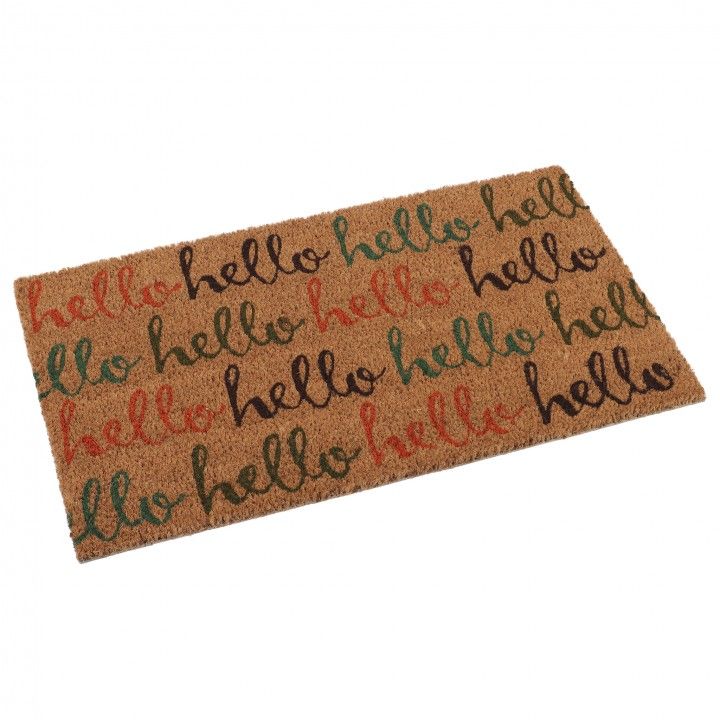 hello hello hello hell
ello hello hello hello
hello hello hello hell
ello hello hello hello